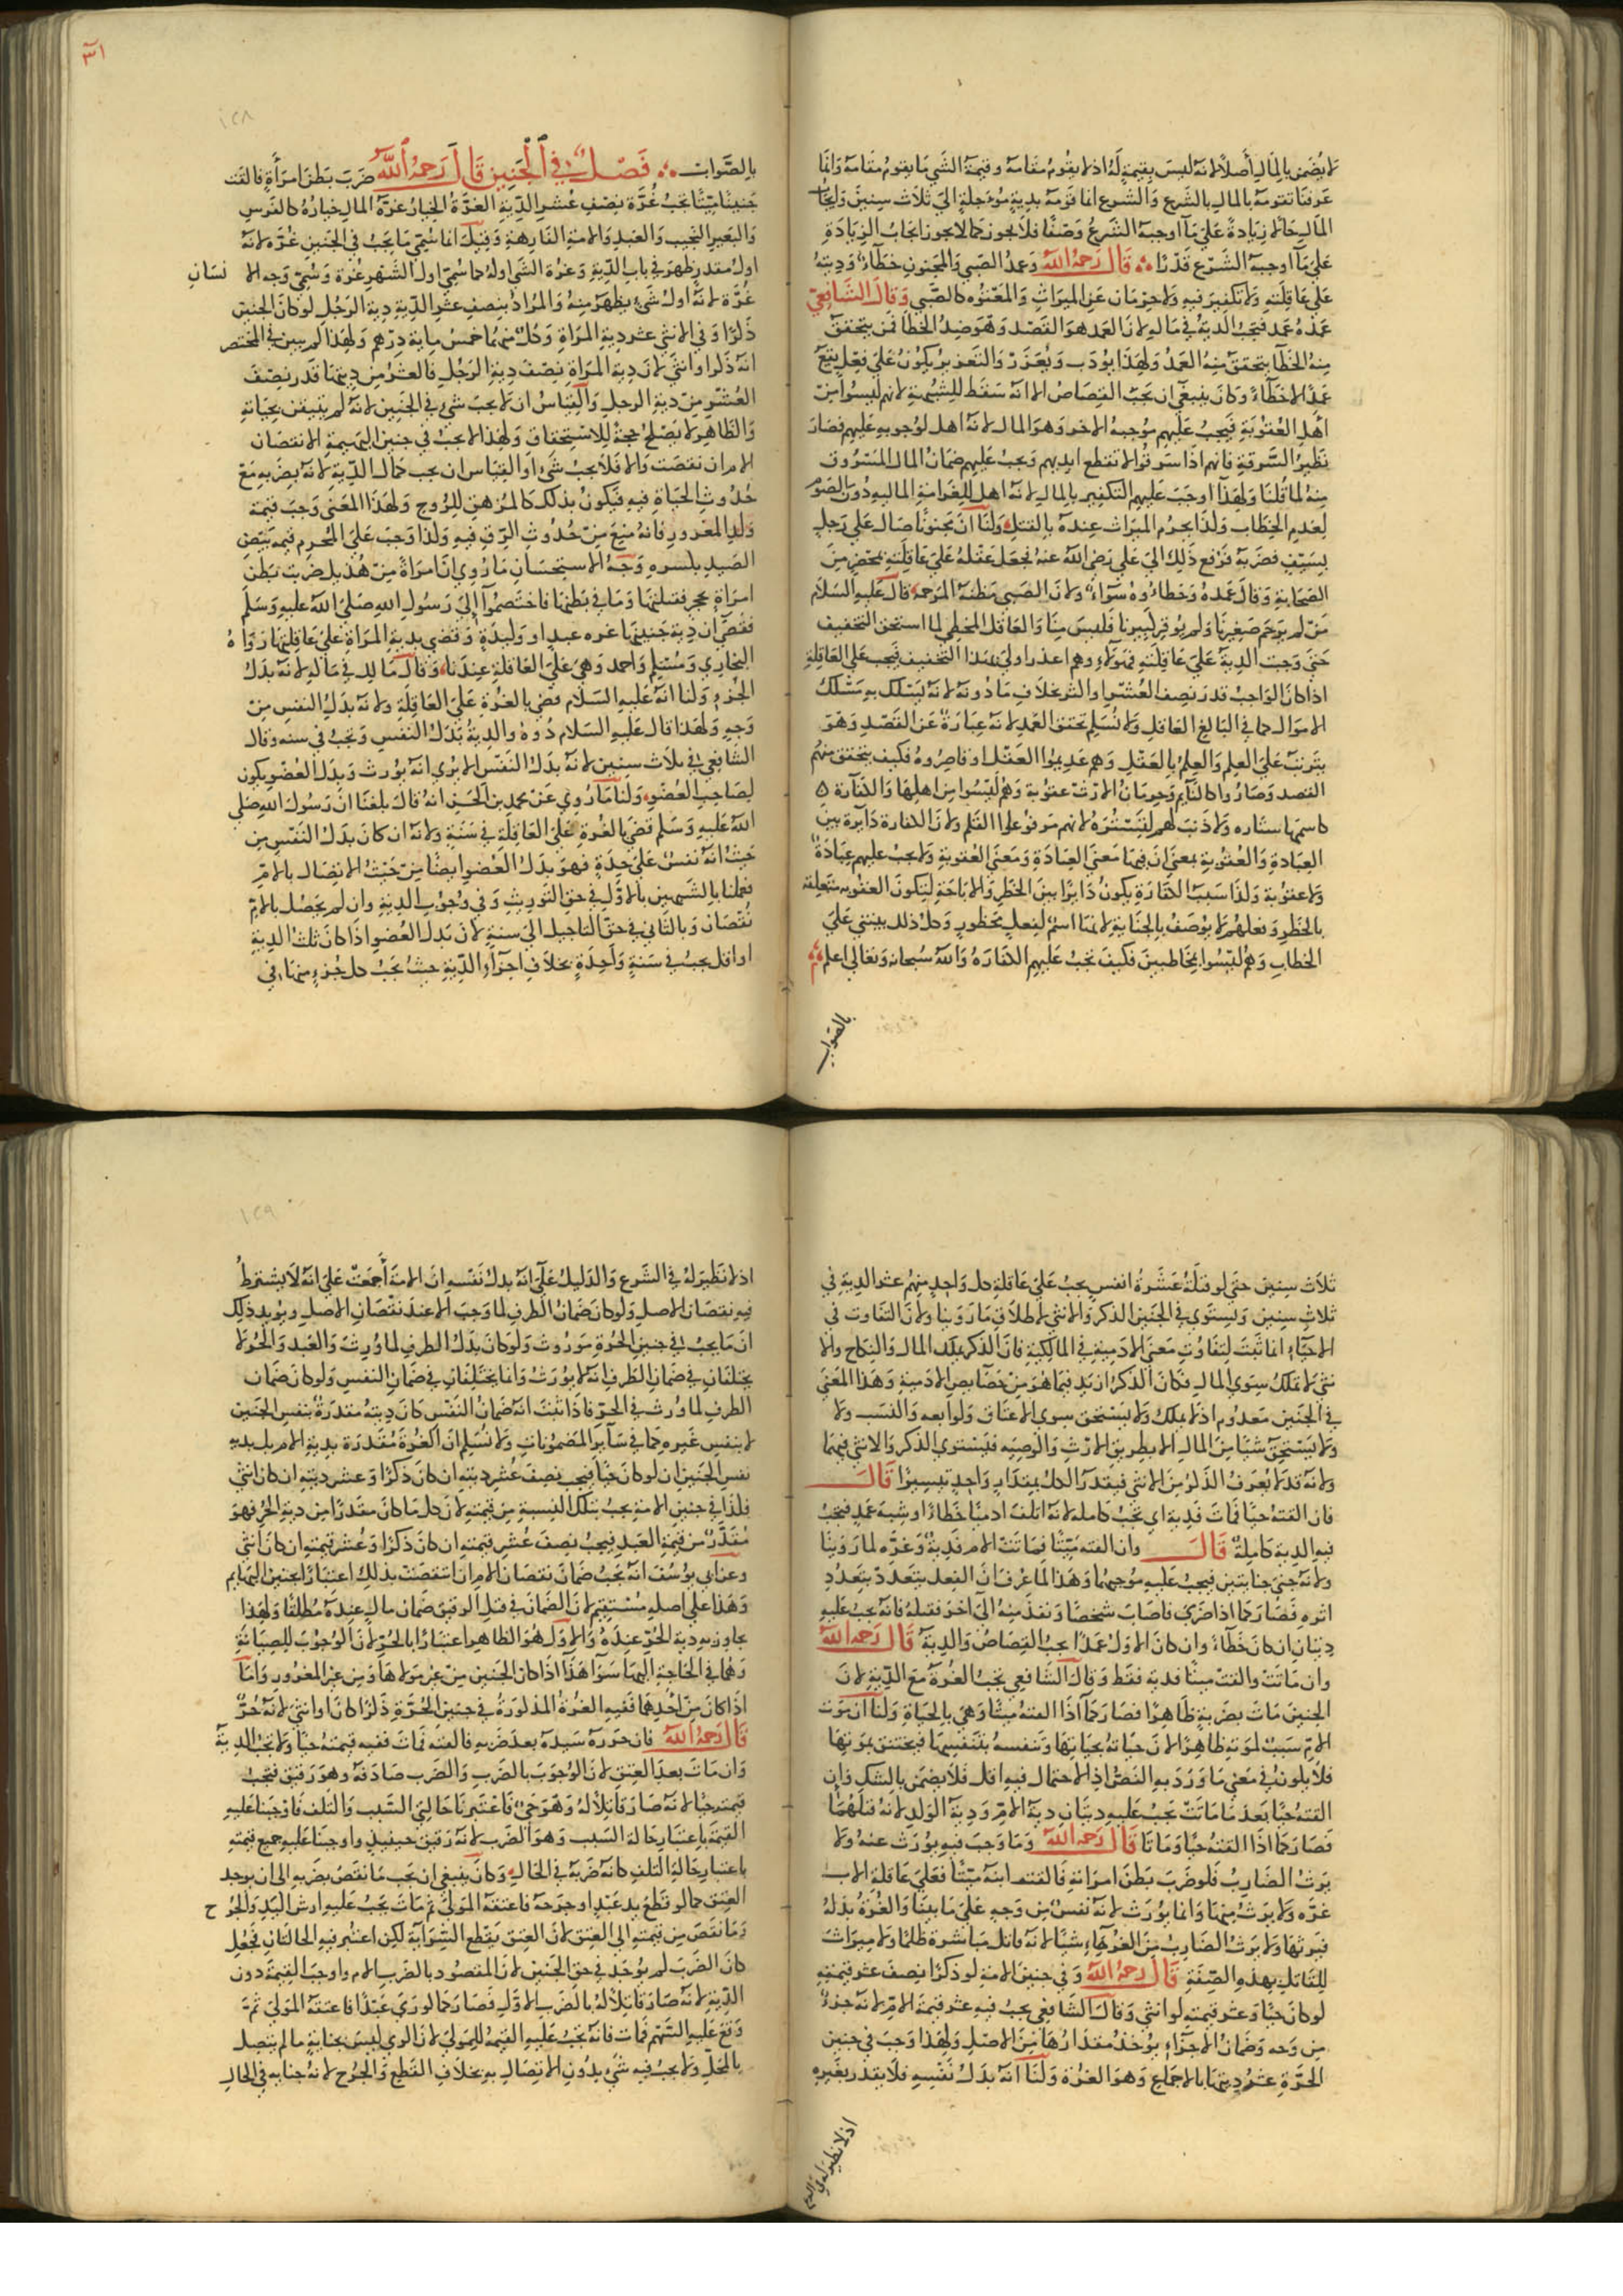 لا يضمن بالمال أصلا لانه ليس بقيمة له اذ لا يقوم مقامه وقيمة الشي ما يقوم مقامه وانما
عرفنا تقومه بالمال بالشرع والشرع انما قومه بدية مؤجلة الي ثلاث سنين وايجاب
المال حالا زيادة علي ما اوجبه الشرع وصفا فلا يجوز كما لا يجوز ايجاب الزيادة
علي ما اوجبه الشرع قدرا قال رحمه الله وعمد الصبي والمجنون خطاء وديته
علي عاقلته ولا تكفير فيه ولا حرمان عن الميراث والمعتوه كالصبي وقال الشافعي
عمده عمد فتجب الدية في ماله لان العمد هو القصد وهو ضد الخطأ فمن يتحقق
منه الخطأ يتحقق منه العمد ولهذا يؤدب ويعزر والتعزير يكون علي فعل يقع
عمدا لا خطاء وكان ينبغي ان يجب القصاص الا انه سقط للشبهة لانهم ليسوا من
اهل العقوبة فيجب عليهم موجبه الاخر وهو المال لانه اهل لوجوبه عليهم فصار
نظير السرقة فانهم اذا سرقوا لا تقطع ايديهم ويجب عليهم ضمان المال المسروق
منه لما قلنا ولهذا اوجب عليهم التكفير بالمال لانه اهل للغرامة المالية دون الصوم
لعدم الخطاب ولذا يحرم الميراث عنده بالقتل ولنا ان مجنونا صال علي رجل
بسيف فضربه فرفع ذلك الي علي رضي الله عنه فجعل عقله علي عاقلته بمحضر من
الصحابة وقال عمده وخطاءوه سواء ولان الصبي مظنة المرحمة قال عليه السلام
من لم يرحم صغيرنا ولم يوقر كبيرنا فليس منا والعاقل المخطي لما استحق التخفيف
حتي وجبت الدية علي عاقلته فهولاء وهم اعذر اولي بهذا التخفيف فيجب علي العاقلة
اذا كان الواجب قدر نصف العشر او اكثر بخلاف ما دونه لانه يسلك به مسلك
الاموال كما في البالغ العاقل ولا نسلم تحقق العمد لانه عبارة عن القصد وهو
يترتب علي العلم والعلم بالعقل وهم عديموا العقل او قاصروه فكيف يتحقق منهم
القصد وصاروا كالنايم وحرمان الارث عقوبة وهم ليسوا من اهلها والكفارة
كاسمها ستاره ولا ذنب لهم لتستره لانهم مرفوع عنهم القلم ولان الكفارة دايرة بين
العبادة والعقوبة بمعني ان فيها معني العبادة ومعني العقوبة ولا يجب عليهم عبادة
ولا عقوبة ولذا سبب الكفارة يكون دايرا بين الحظر والاباحة لتكون العقوبه متعلقه
بالحظر وفعلهم لا يوصف بالجناية لانها اسم لفعل محظور وكل ذلك يبتني علي
الخطاب وهم ليسوا بمخاطبين فكيف تجب عليهم الكفارة والله سبحانه وتعالي اعلم
بالصواب
١٢٨
بالصواب فصل في الجنين قال رحمه الله ضرب بطن امرأة فالقت
جنينا ميتا تجب غرة نصف عشر الدية الغرة الخيار غرة المال خياره كالفرس
والبعير النجيب والعبد والامة الفارهة وقيل انما سمي ما يجب في الجنين غرة لانه
اول مقدر ظهر في باب الدية وغرة الشي اوله كما سمي اول الشهر غرة وسمي وجه الانسان
غرة لانه اول شي يظهر منه والمراد بنصف عشر الدية دية الرجل لو كان الجنين
ذكرا وفي الانثي عشر دية المراة وكل منهما خمس ماية درهم ولهذا لم يبين في المختصر
انه ذكر او انثي لان دية المراة نصف دية الرجل فالعشر من ديتها قدر نصف
العشر من دية الرجل والقياس ان لا يجب شي في الجنين لانه لم يتيقن بحياته
والظاهر لا يصلح حجة للاستحقاق ولهذا لا يجب في جنين البهيمة الا نقصان
الام ان نقصت والا فلا يجب شي او القياس ان يجب كمال الدية لانه بضربه منع
حدوث الحياة فيه فيكون بذلك كالمزهق للروح ولهذا المعني وجب قيمة
ولد المغرور فانه منع من حدوث الرق فيه ولذا وجب علي المحرم قيمة بيض
الصيد بكسره وجه الاستحسان ما روي ان امراة من هذيل ضربت بطن
امراة بحجر فقتلتها وما في بطنها فاختصموا إلي رسول الله صلي الله عليه وسلم
فقضي ان دية جنينها غره عبد او وليدة وقضي بدية المراة علي عاقلتها رواه
البخاري ومسلم واحمد وهي علي العاقلة عندنا وقال مالك في ماله لانه بدل
الجزء ولنا انه عليه السلام قضي بالغرة علي العاقلة ولانه بدل النفس من
وجه ولهذا قال عليه السلام دوه والدية بدل النفس وتجب في سنه وقال
الشافعي في ثلاث سنين لانه بدل النفس الا تري انه يورث وبدل العضو يكون
لصاحب العضو ولنا ما روي عن محمد بن الحسن انه قال بلغنا ان رسول الله صلي
الله عليه وسلم قضي بالغرة علي العاقلة في سنة ولانه ان كان بدل النفس من
حيث انه نفس علي حدة فهو بدل العضو ايضا من حيث الاتصال بالام
فعملنا بالشبهين بالاول في حق التوريث وفي وجوب الدية وان لم يحصل بالام
نقصان وبالثاني في حق التاجيل الي سنة لان بدل العضو اذا كان ثلث الدية
او اقل يجب في سنة واحدة بخلاف اجزاء الدية حيث يجب كل جزء منها في
ثلاث سنين حتي لو قتله عشرة انفس يجب علي عاقلة كل واحد منهم عشر الدية في
ثلاث سنين ويستوي في الجنين الذكر والانثي لاطلاق ما روينا ولان التفاوت في
الاحياء انما ثبت لتفاوت معني الادمية في المالكية فان الذكر يملك المال والنكاح والا
نثي لا تملك سوي المال فكان الذكر ازيد فيما هو من خصايص الادمية وهذا المعني
في الجنين معدوم اذ لا يملك ولا يستحق سوي الاعتاق وتوابعه والنسب ولا
ولا يستحق شيا من المال الا بطريق الارث والوصيه فليستوي الذكر والانثي فيهما
ولانه قد لا يعرف الذكر من الانثي فيقدر الكل بمقدار واحد تيسيرا قال
فان القته حيا فمات فدية اي تجب كامله لانه اتلف ادميا خطاء او شبه عمد فتجب
فيه الدية كاملة قال وان القته ميتا فماتت الام فدية وغره لما روينا
ولانه جني جنايتين فيجب عليه موجبهما وهذا لما عرف ان الفعل يتعدد بتعدد
اثره فصار كما اذا رمي فاصاب شخصا ونفذ منه الي آخر فقتله فانه يجب عليه
ديتان ان كان خطاء وان كان الاول عمدا يجب القصاص والدية قال رحمه الله
وان ماتت والقت ميتا فديه فقط وقال الشافعي تجب الغرة مع الدية لان
الجنين مات بضربة ظاهرا فصار كما اذا القته ميتا وهي بالحياة ولنا ان موت
الام سبب لموته ظاهرا لان حياته بحياتها وتنفسه بتنفسها فيختنق بموتها
فلا يكون في معني ما ورد به النص اذ الاحتمال فيه اقل فلا يضمن بالشك وان
القته حيا بعد ما ماتت تجب عليه ديتان دية الام ودية الولد لانه قتلهما
فصار كما اذا القته حيا وماتا قال رحمه الله وما وجب فيه يورث عنه ولا
يرث الضارب فلو ضرب بطن امراته فالقت ابنه ميتا فعلي عاقلة الاب
غره ولا يرث منها وانما يورث لانه نفس من وجه علي ما بينا والغرة بدله
فيرثها ولا يرث الضارب من الغرة شيا لانه قاتل مباشرة ظلما ولا ميراث
للقاتل بهذه الصفة قال رحمه الله وفي جنين الامة لو ذكرا نصف عشر قيمته
لو كان حيا وعشر قيمته لو انثي وقال الشافعي يجب فيه عشر قيمة الام لانه جزء
من وجه وضمان الاجزاء يؤخذ مقدارها من الاصل ولهذا وجب في جنين
الحرة عشر ديتها بالاجماع وهو الغرة ولنا انه بدل نفسه فلا يقدر بغيره
اذ لا نظير له في الشرع
١٢٩
اذ لا نظير له في الشرع والدليل علي انه بدل نفسه ان الامة أجمعت علي انه لا يشترط
فيه نقصان الاصل ولو كان ضمان الطرف لما وجب الا عند نقصان الاصل ويؤيد ذلك
ان ما يجب في جنين الحرة موروث ولو كان بدل الطرف لما ورث والعبد والحر لا
يختلفان في ضمان الطرف لانه لا يورث وانما يختلفان في ضمان النفس ولو كان ضمان
الطرف لما ورث في الحر فاذا ثبت انه ضمان النفس كان ديته مقدرة بنفس الجنين
لا بنفس غيره كما في ساير المضمونات ولا نسلم ان الغرة مقدرة بدية الام بل بديه
نفس الجنين ان لو كان حيا فيجب نصف عشر ديته ان كان ذكرا وعشر ديته ان كان انثي
فلذا في جنين الامة يجب بتلك النسبة من قيمته لان كل ما كان مقدرا من دية الحر فهو
مقدر من قيمة العبد فيجب نصف عشر قيمته ان كان ذكرا وعشر قيمته ان كان أنثي
وعن ابي يوسف انه يجب ضمان نقصان الام ان انتقصت بذلك اعتبارا بجنين البهايم
وهذا علي اصله مستقيم لان الضمان في قتل الرقيق ضمان مال عنده مطلقا ولهذا
يجاوز به دية الحر عنده والاول هو الظاهر اعتبارا بالحر لان الوجوب للصيانة
وهما في الحاجة اليها سوا هذا اذا كان الجنين من غير مولاها ومن غير المغرور واما
اذا كان من احدهما ففيه الغرة المذكورة في جنين الحرة ذكرا كان او انثي لانه حر
قال رحمه الله فان حرره سيده بعد ضربه فالقته فمات ففيه قيمته حيا ولا تجب الدية
وان مات بعد العتق لان الوجوب بالضرب والضرب صادفه وهو رقيق فتجب
قيمته حيا لانه صار قاتلا له وهو حي فاعتبرنا حالتي السبب والتلف فاوجبنا عليه
القيمة باعتبار حالة السبب وهو الضرب لانه رقيق حينيذ واوجبنا عليه جميع قيمته
باعتبار حالة التلف كانه ضربه في الحال وكان ينبغي ان يجب ما نقص بضربه الى ان يوجد
العتق كما لو قطع يد عبد او جرحه فاعتقه المولي ثم مات يجب عليه ارش اليد والجرح
وما نقص من قيمته الي العتق لان العتق يقطع السراية لكن اعتبر فيه الحالتان فجعل
كان الضرب لم يوجد في حق الجنين لان المقصود بالضرب الام واوجب القيمة دون
الدية لانه صار قاتلا له بالضرب الاول فصار كما لو رمي عبدا فاعتقه المولي ثم
وقع عليه السهم فمات فانه تجب عليه القيمة للمولي لان الرمي ليس بجناية ما لم يتصل
بالمحل ولا يجب فيه شي بدون الاتصال به بخلاف القطع والجرح لانه جنايه في الحال